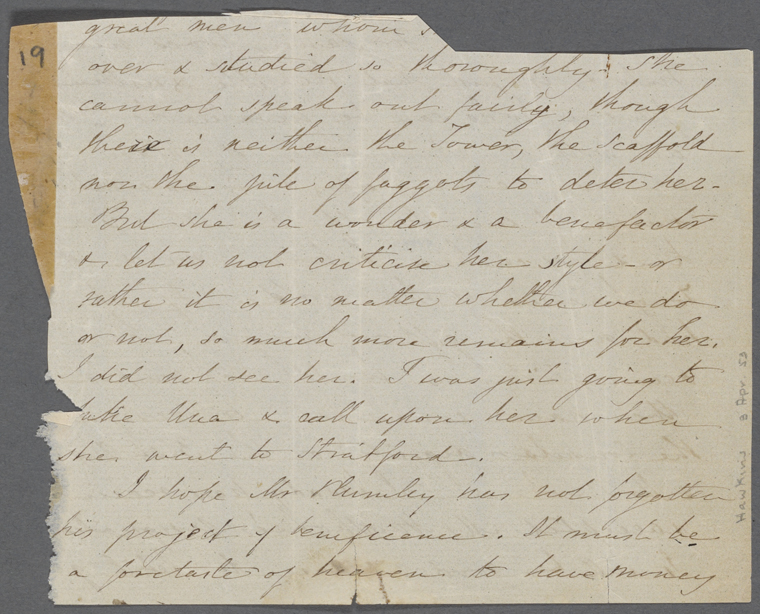 19
great men whom
over & studied so thoroughly. She
cannot speak out fairly, though
there is neither the Tower, the scaffold
nor the pile of faggots to deter her.
But she is a wonder & a benefactor
& let us not criticise her style - or
rather it is no matter whether we do
or not, so much more remains for her.
I did not see her. I was just going to
take Una & call upon her when
she went to Stratford.
I hope Mr Plumley has not forgotten
his project of beneficence. It must be
a foretaste of heaven to have money
Hawkins 3 Apr 53